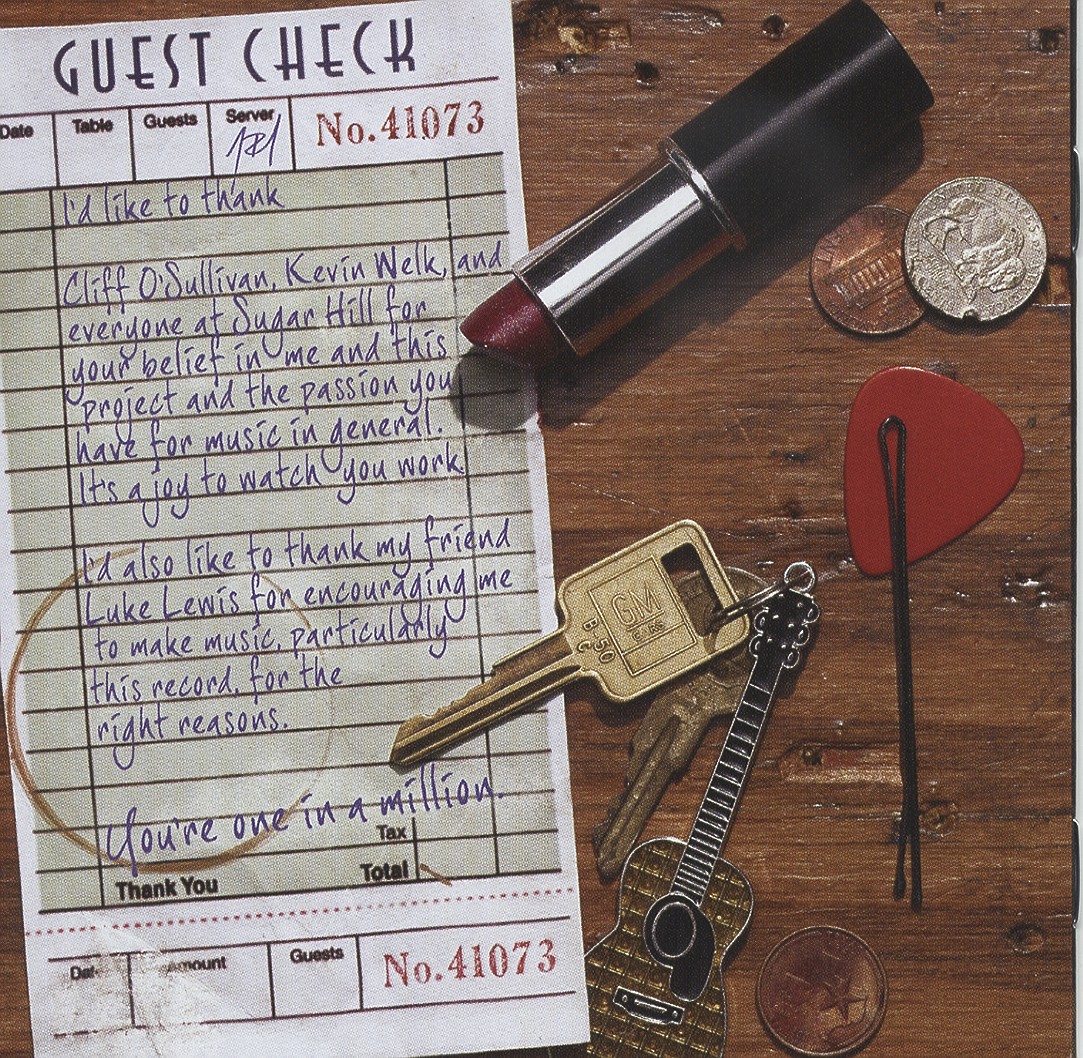 GUEST CHECK
Date Table Guests Server No.41073
I'd like to thank
Cliff O'Sullivan, Kevin Welk, and
everyone at Sugar Hill for
your belief in me and this
project and the passion you
have for music in general.
It's a joy to watch you work.
I'd also like to thank my friend
Luke Lewis for encouraging me
to make music, particularly
this record, for the
right reasons.
You're one in a million.
Tax
Thank You Total
Guests No.41073
GM